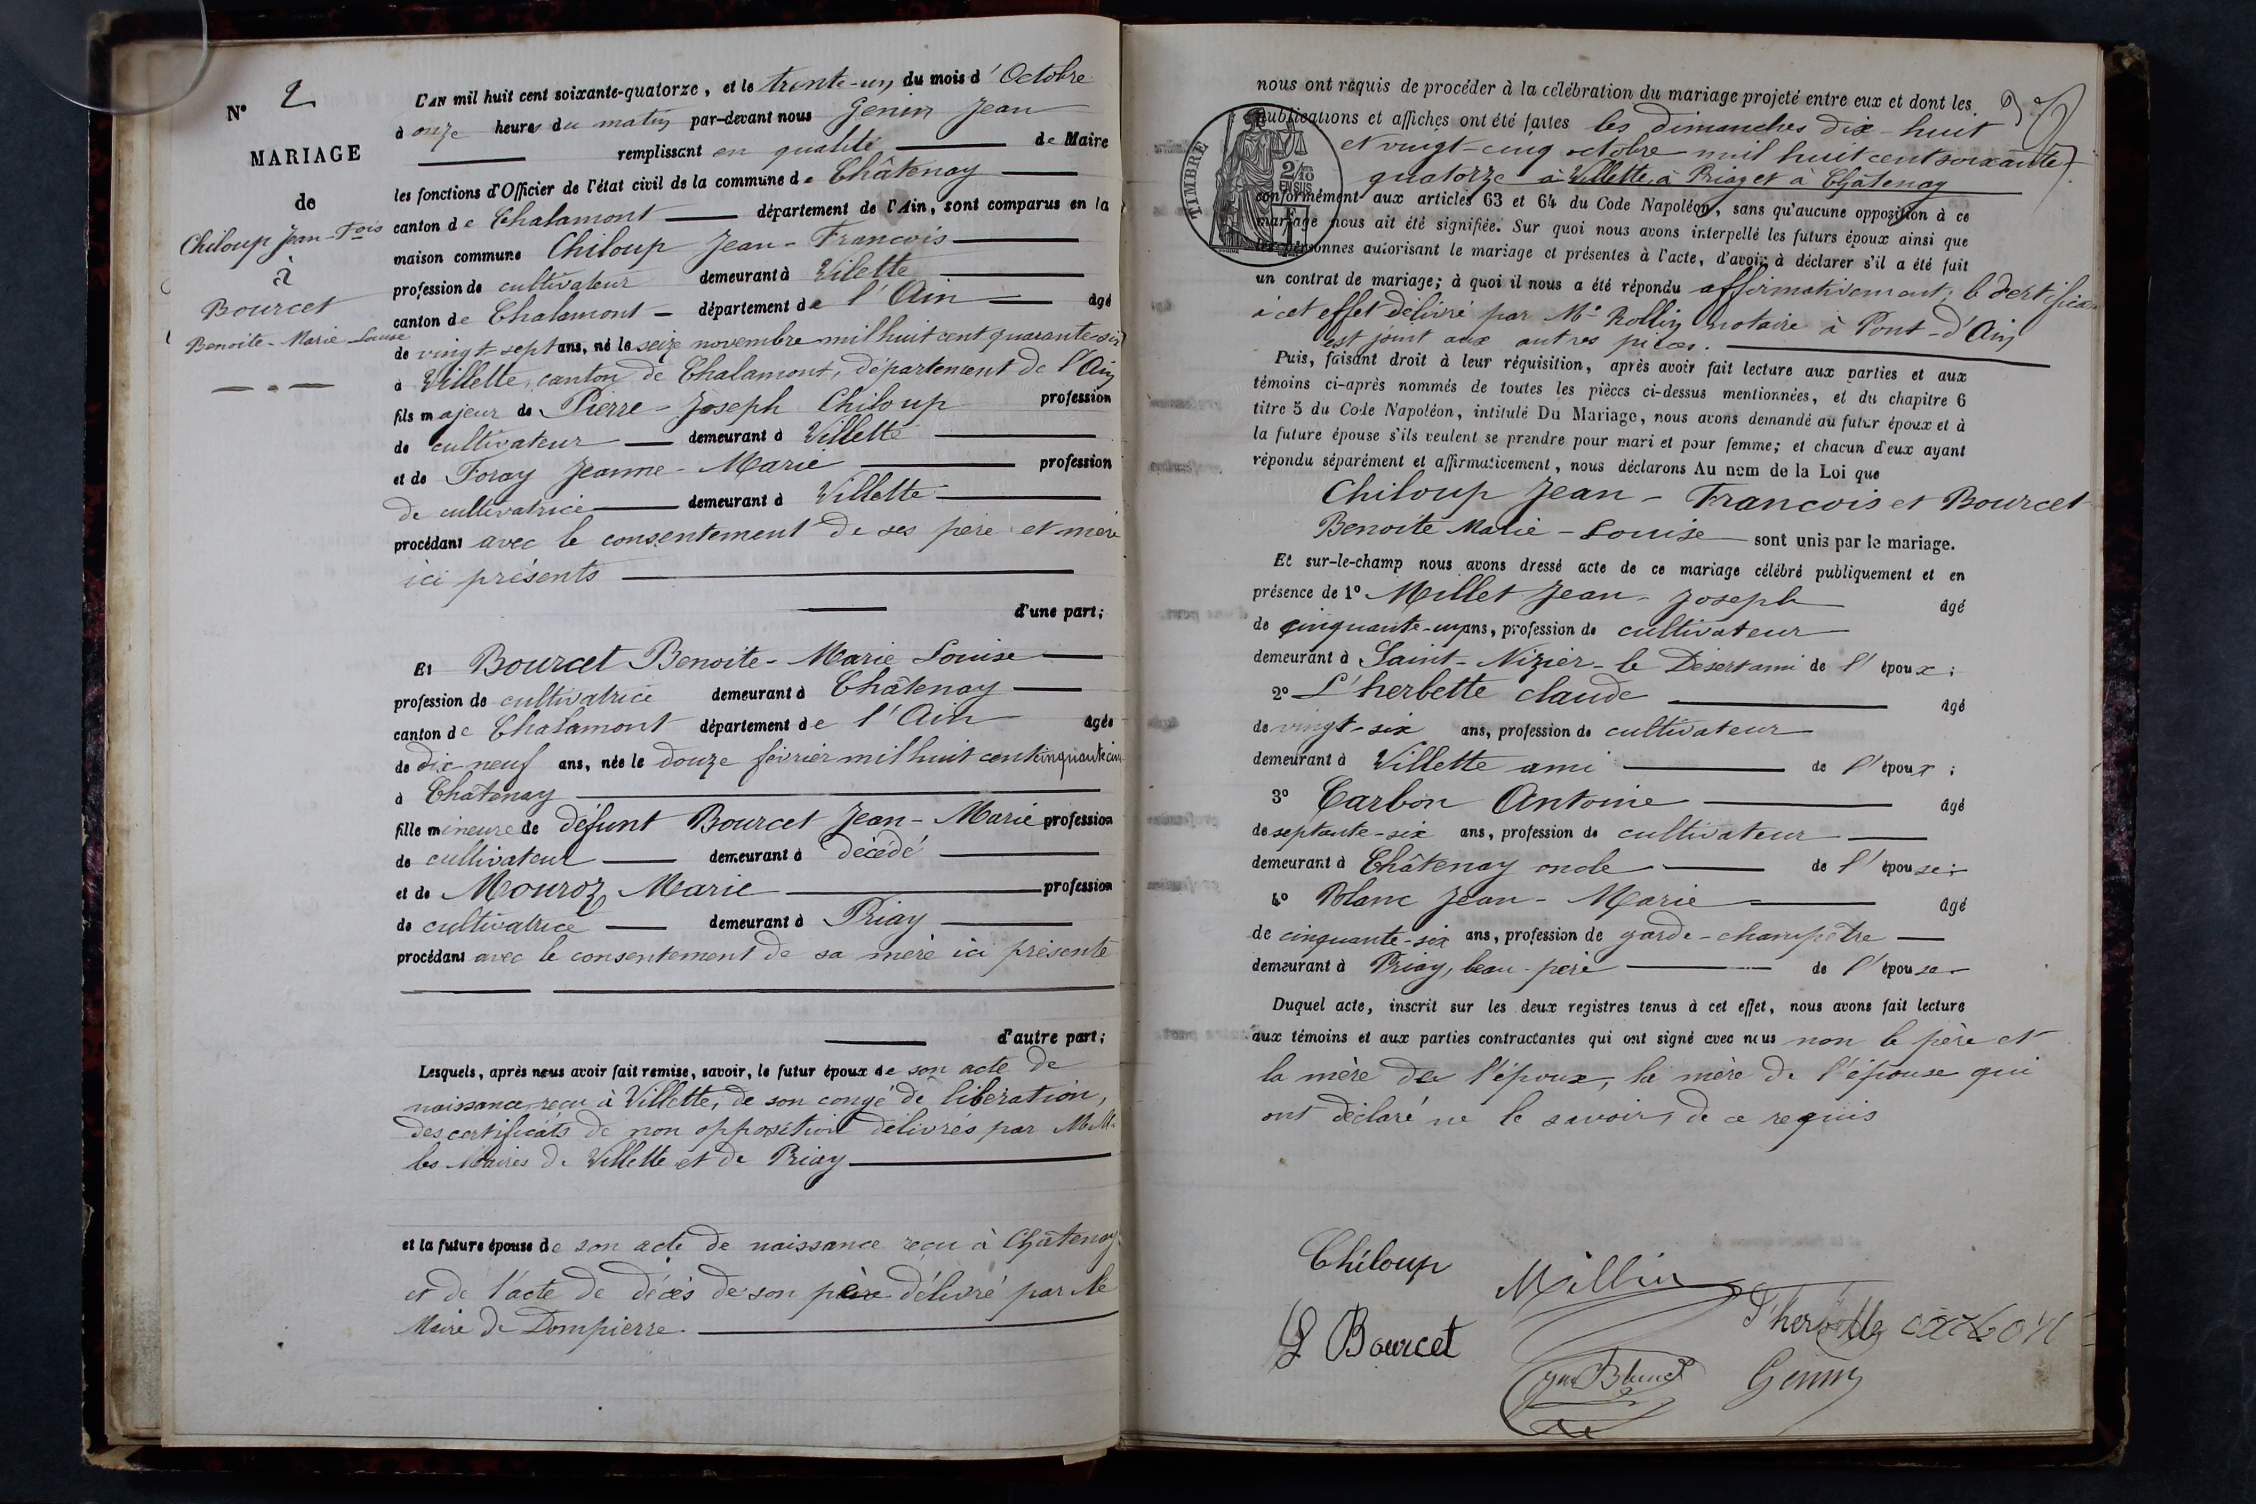 N° 2
MARIAGE
de
Chiloup Jean-Fois
à
Bourcet
Benoite-Marie-Louise
L'AN mil huit cent soixante-quatorze, et le trente-un du mois d'Octobre
à onze heures du matin par-devant nous Genin Jean
remplissant en qualité de Maire
les fonctions d'Officier de l'état civil de la commune de Châtenay
canton de Chalamont département de l'Ain, sont comparus en la
maison commune Chiloup Jean-Francois
profession de cultivateur demeurant à Vilette
canton de Chalamont département de l'Ain âgé
de vingt-sept ans, né le seize novembre mil huit cent quarante-six
à Villette, canton de Chalamont, département de l'Ain
fils majeur de Pierre-Joseph Chiloup profession
de cultivateur demeurant à Villette
et de Foray Jeanne-Marie profession
de cultivatrice demeurant à Villette
procédant avec le consentement de ses père et mère
ici présents
d'une part;
Et Bourcet Benoite-Marie Louise
profession de cultivatrice demeurant à Châtenay
canton de Chalamont département de l'Ain âgée
de dix-neuf ans, née le douze février mil huit cent cinquante cinq
à Châtenay
fille mineure de défunt Bourcet Jean-Marie profession
de cultivateur demeurant à décédé
et de Mouroz Marie profession
de cultivatrice demeurant à Priay
procédant avec le consentement de sa mère ici présente
d'autre part;
Lesquels, après nous avoir fait remise, savoir, le futur époux de son acte de
naissance reçu à Villette, de son congé de libération,
des certificats de non opposition délivrés par M.M.
les Maires de Villette et de Priay
et la future épouse de son acte de naissance reçu à Châtenay
et de l'acte de décès de son père délivré par Me
Maire de Dompierre.
nous ont requis de procéder à la célébration du mariage projeté entre eux et dont les
publications et affiches ont été faites les dimanches dix-huit
et vingt-cinq octobre mil huit cent soixante
quatorze à Villette, à Priay et à Châtenay
TIMBRE
2/10
EN SUS
1F
conformément aux articles 63 et 64 du Code Napoléon, sans qu'aucune opposition à ce
mariage nous ait été signifiée. Sur quoi nous avons interpellé les futurs époux ainsi que
les personnes autorisant le mariage et présentes à l'acte, d'avoir à déclarer s'il a été fait
un contrat de mariage; à quoi il nous a été répondu affirmativement; le certificat
à cet effet délivré par Me Rollin notaire à Pont-d'Ain
est joint aux autres pièces.
Puis, faisant droit à leur réquisition, après avoir fait lecture aux parties et aux
témoins ci-après nommés de toutes les pièces ci-dessus mentionnées, et du chapitre 6
titre 5 du Code Napoléon, intitulé Du Mariage, nous avons demandé au futur époux et à
la future épouse s'ils veulent se prendre pour mari et pour femme; et chacun d'eux ayant
répondu séparément et affirmativement, nous déclarons Au nom de la Loi que
Chiloup Jean-Francois et Bourcet
Benoite Marie-Louise sont unis par le mariage.
Et sur-le-champ nous avons dressé acte de ce mariage célébré publiquement et en
présence de 1° Millet Jean-Joseph âgé
de cinquante-un ans, profession de cultivateur
demeurant à Saint-Nizier-le Désert ami de l'époux;
2° L'herbette claude âgé
de vingt-six ans, profession de cultivateur
demeurant à Villette ami de l'époux;
3° Carbon Antoine âgé
de septante-six ans, profession de cultivateur
demeurant à Châtenay oncle de l'épouse;
4° Blanc Jean-Marie âgé
de cinquante-six ans, profession de garde-champêtre
demeurant à Priay, beau-père de l'épouse
Duquel acte, inscrit sur les deux registres tenus à cet effet, nous avons fait lecture
aux témoins et aux parties contractantes qui ont signé avec nous non le père et
la mère de l'époux, la mère de l'épouse qui
ont déclaré ne le savoir, de ce requis
Chiloup
L Bourcet
L'herbette carbon
Blanc
Genin